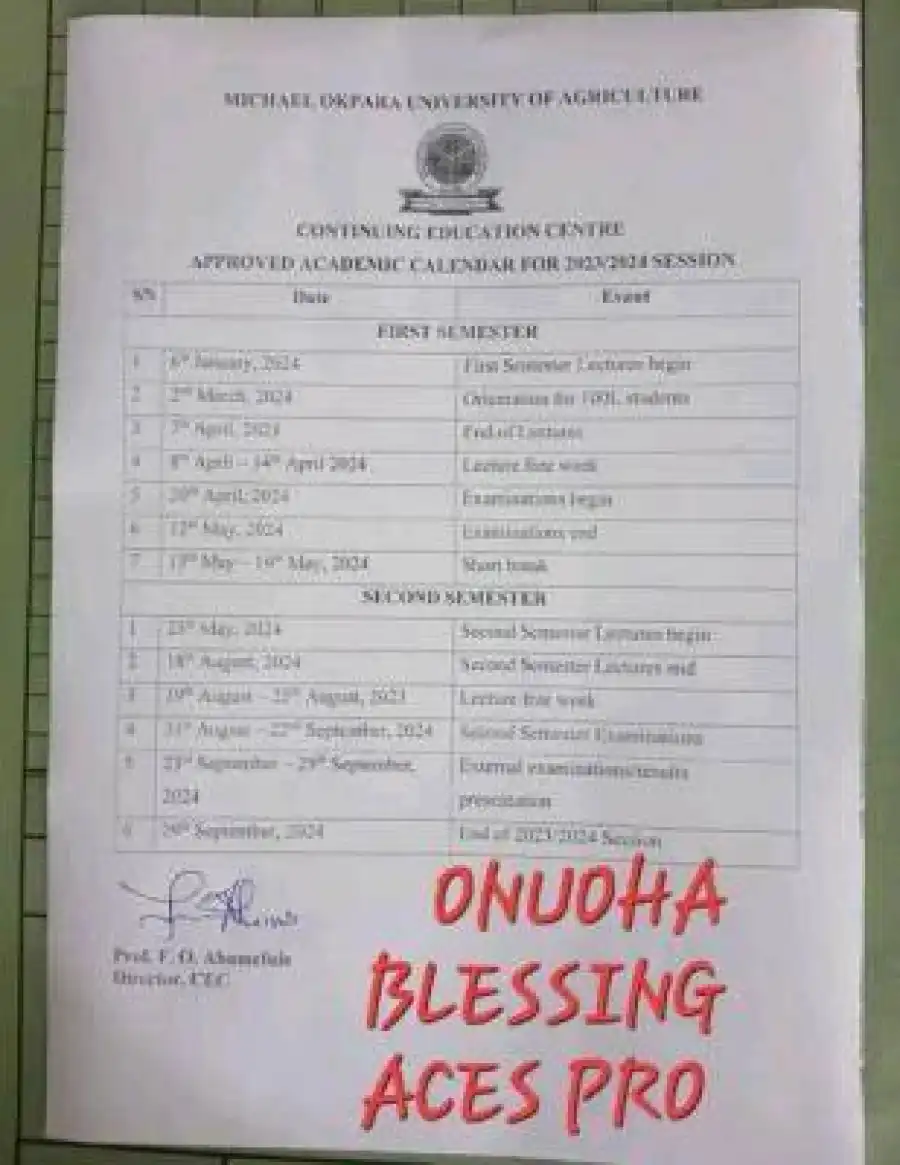 MICHAEL OKPARA UNIVERSITY OF AGRICULTURE
CONTINUING EDUCATION CENTRE
APPROVED ACADEMIC CALENDAR FOR 2023/2024 SESSION
S/N Date Event
FIRST SEMESTER
1 6th January, 2024 First Semester Lectures begin
2 2nd March, 2024 Orientation for 100L students
3 7th April, 2024 End of Lectures
4 8th April – 14th April 2024 Lecture free week
5 20th April, 2024 Examinations begin
6 12th May, 2024 Examinations end
7 13th May – 19th May, 2024 Short break
SECOND SEMESTER
1 May, 2024 Second Semester Lectures begin
2 18th August, 2024 Second Semester Lectures end
3 19th August – 25th August, 2023 Lecture free week
4 31st August – 22nd September, 2024 Second Semester Examinations
5 23rd September – 29th September, External examinations/results
2024 presentation
6 29th September, 2024 End of 2023/2024 Session
Prof. F. O.
Director, CEC
ONUOHA
BLESSING
ACES PRO